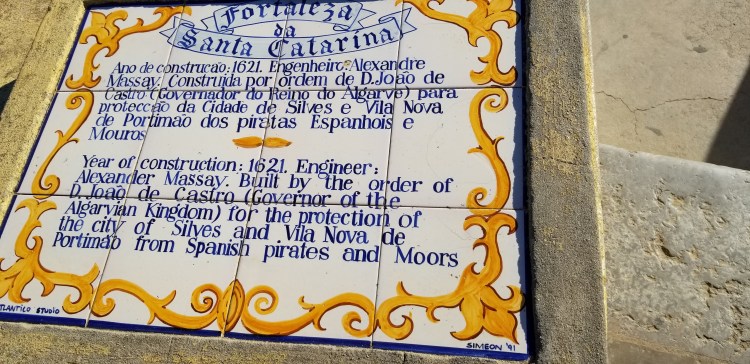 Fortaleza
da
Santa Catarina
Ano de construcao: 1621. Engenheiro: Alexandre
Massay. Construida por ordem de D. João de
Castro (Governador do Reino do Algarve) para
protecção da Cidade de Silves e Vila Nova
de Portimão dos piratas Espanhois e
Mouros
Year of construction: 1621. Engineer:
Alexander Massay. Built by the order of
D. João de Castro (Governor of the
Algarvian Kingdom) for the protection of
the city of Silves and Vila Nova de
Portimão from Spanish pirates and Moors
TLANTICO STUDIO
SIMEON '91